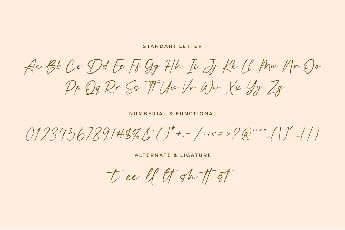 STANDART LETTER
Aa Bb Cc Dd Ee Ff Gg Hh Ii Jj Kk Ll Mm Nn Oo
Pp Qq Rr Ss Tt Uu Vv Ww Xx Yy Zz
NUMBERIAL & FUNCTIONAL
0123456789!#$%&
ALTERNATE & LIGATURE
t ee ll lt oh tt